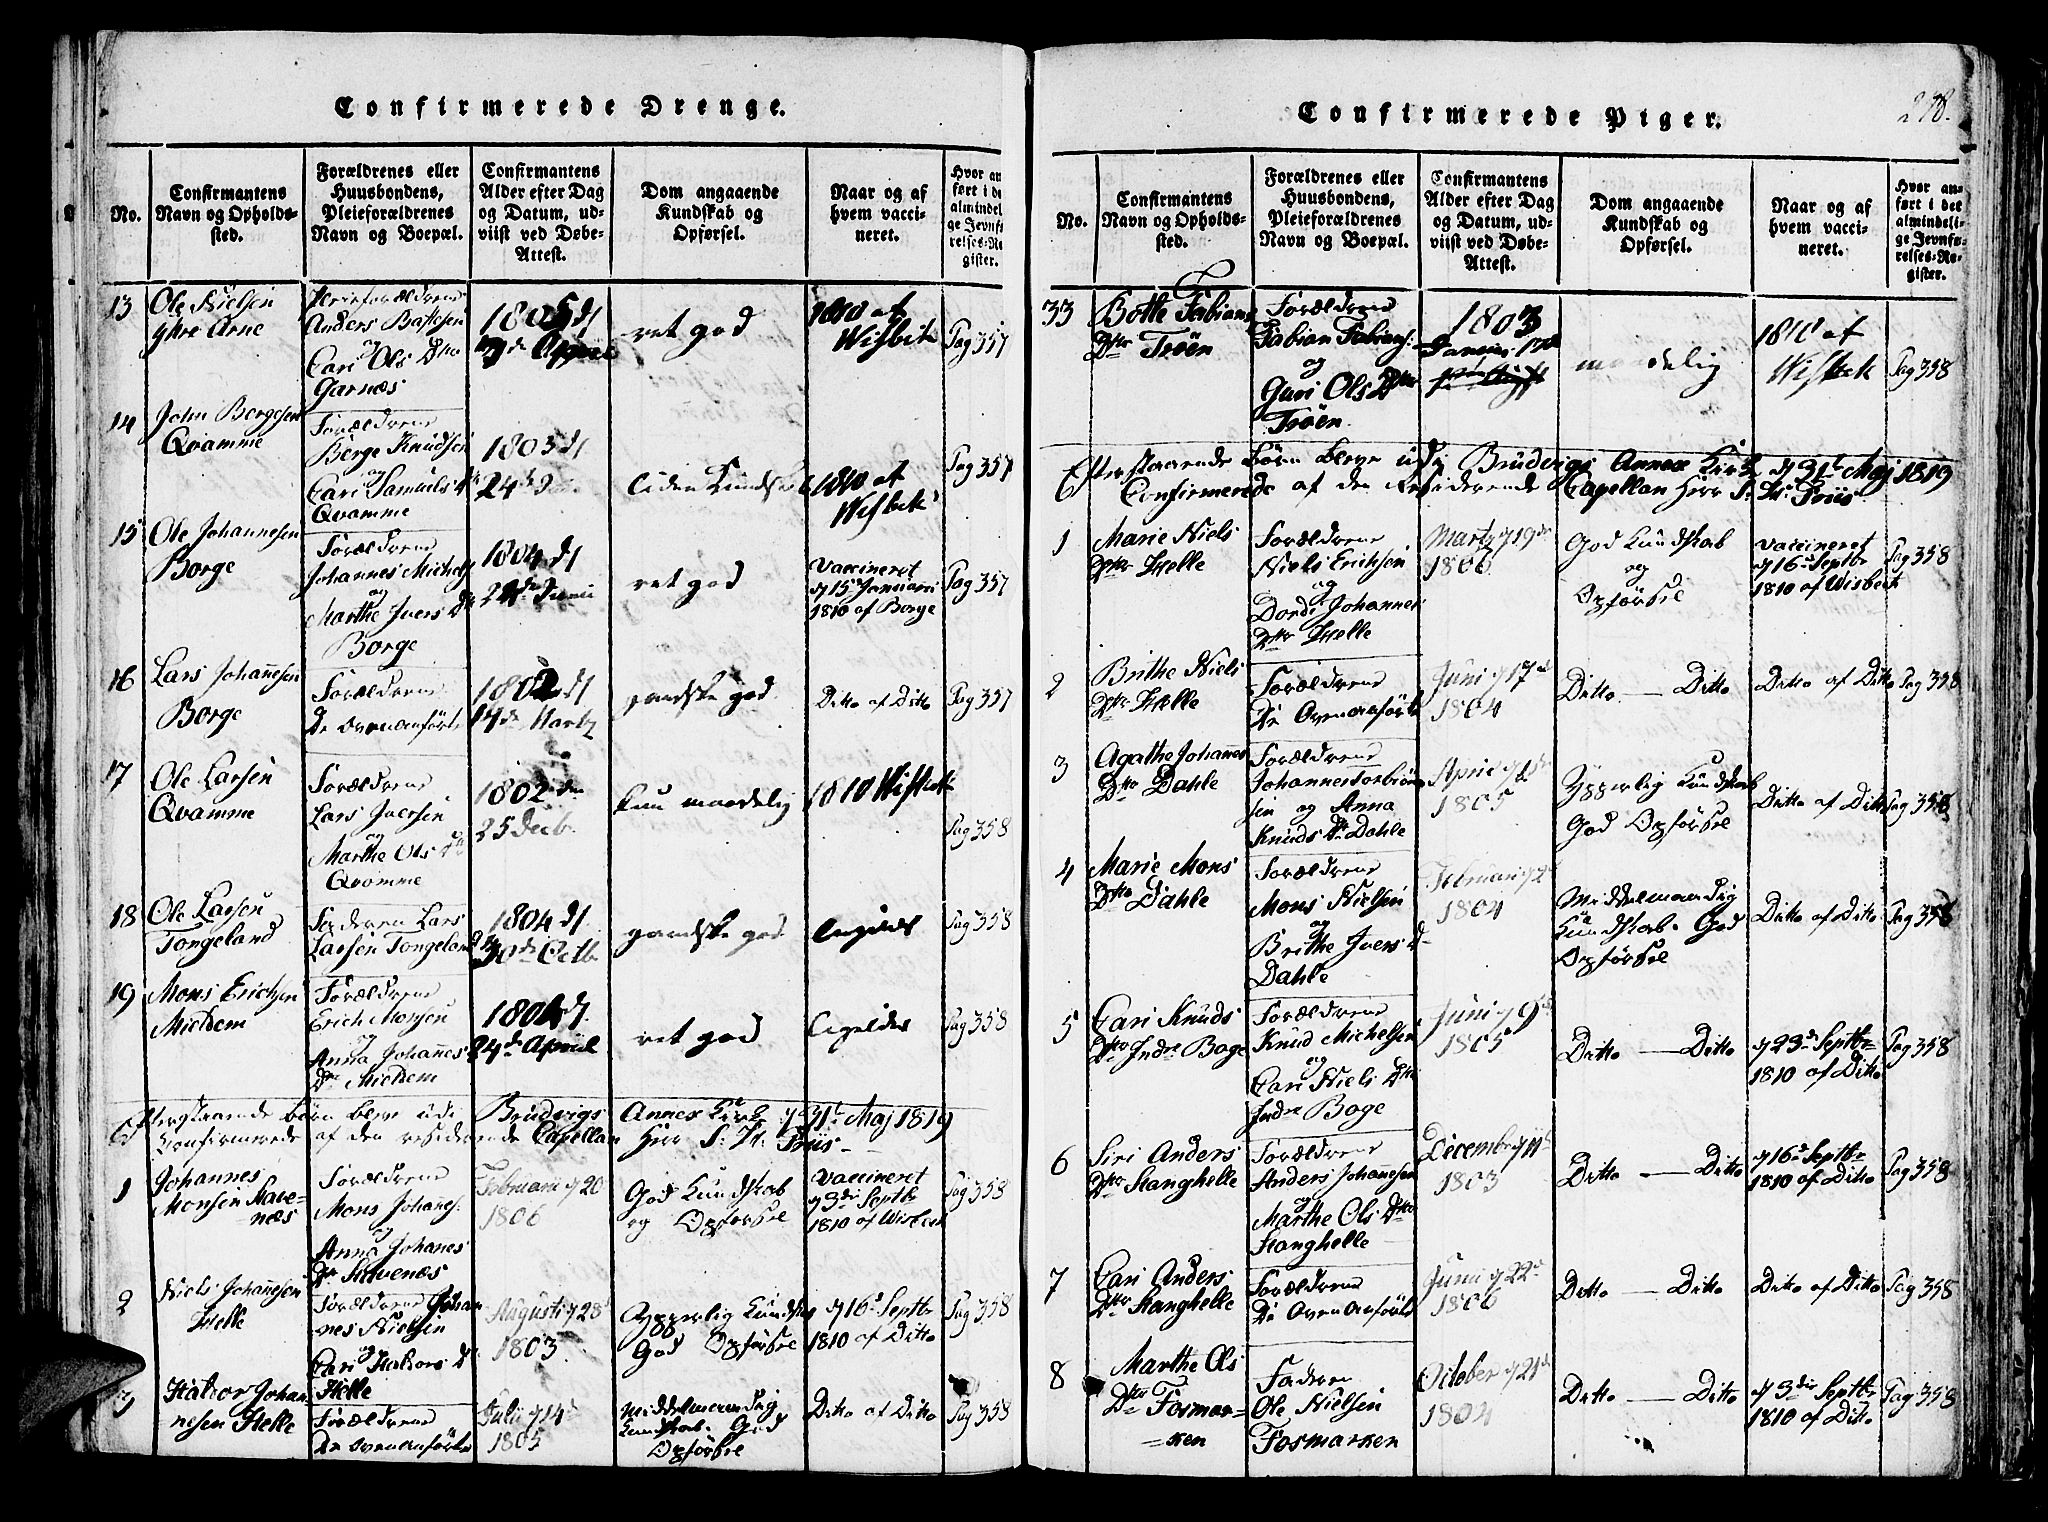 Confirmerede Drenge.
No.
Confirmantens
Navn og Opholds-
sted.
Forældrenes eller
Huusbondens,
Pleieforældrenes
Navn og Boepæl.
Confirmantens
Alder efter Dag
og Datum, ud-
viist ved Døbe-
Attest.
Dom angaaende
Kundskab og
Opførsel.
Naar og af
hvem vacci-
neret.
Hvor an
ført i de
almindel
ge Jevnf
relses-Re
gister.
13
Ole Nielsen
ytre Arne
Pleieforældrene
Anders Baltesen
og
Cari Ols Dtr
Garnæs
1805 d
Appril
ret god
1810 af
Wisbek
Pag 357
14
John Børgesen
Qvamme
Forældrene
Børge Knudsen
og
Cari Samuels Dtr
Qvamme
1803 d
24de
liden Kundskab
1810 af
Wisbek
Pag 357
15
Ole Johannesen
Borge
Forældrene
Johannes Michels
og
Marthe Ivers Dtr
Borge
1804 d
Junii
ret god
vaccineret
d 15 Januari
1810 af Borge
Pag 357
16
Lars Johanesen
Borge
Forældrene
De ovenanførte
1802 d
14de Martz
gandske god
Ditto af Ditto
Pag 357
17
Ole Larsen
Qvamme
Forældrene
Lars Iversen
og
Marthe Ols Dtr
Qvamme
1802 den
25 Decb.
kun maadelig
1810 Wisbek
Pag 358
18
Ole Larsen
Tongeland
Faderen Lars
Larsen Tongeland
1804 d
30de Octb
gandske god
Pag 358
19
Mons Ericksen
Mieldem
Forældrene
Erich Monsen
og
Anna Johannes
Dtr Mieldem
1804 d
24de Appril
ret god
Pag 358
Efterstaaende børn bleve udi Brudvigs Annex Kirke d 31te Maj 1819
Confirmerede af den residerende Capellan Herr S: H: Friis
1
Johannes
Monsen Stave-
næs
Forældrene
Mons Johanes:
og
Anna Johanes
Dtr Stavenæs
Februari d 20
1806
God Kundskab
og Opførsel
vaccineret
d 3die Septbr
1810 af Wisbech
Pag 358
2
Niels Johanesen
Helle
Forældrene Johan
nes Nielsen
og
Cari Haldors Dtr
Helle
Augusti d 28
1803
Ypperlig Kundskab
God Opførsel
d 16d Septbr
1810 af Ditto
Pag 358
3
Haldor Johan
nesen Helle
Forældrene
De ovenanførte
Julii d 14d
1805
Middelmaadig
Kundskab. God
Opførsel
Ditto af Ditto
Pag 358
Confirmerede Piger.
No.
Confirmantens
Navn og Opholds-
sted.
Forældrenes eller
Huusbondens,
Pleieforældrenes
Navn og Boepæl.
Confirmantens
Alder efter Dag
og Datum, ud-
viist ved Døbe-
Attest.
Dom angaaende
Kundskab og
Opførsel.
Naar og af
hvem vacci-
neret.
Hvor an-
ført i det
almindeli-
ge Jevnfø-
relses-Re-
gister.
33
Botte Fabians
Dtr Trøen
Forældrene
Fabian Fabians:
og
Guri Ols Dtr
Trøen
1803
maadelig
1810 af
Wisbek
Pag 358
Efterstaaende Børn bleve udi Brudvigs Annex Kirke d 31te Maj 1819
Confirmerede af den Residerende Capellan Herr S: H: Friis
1
Marie Niels
Dtr Helle
Forældrene
Niels Ericksen
og
Dorde Johannes
Dtr Helle
Martz d 19de
1806
God Kundskab
og
Opførsel
vaccineret
d 16 Septbr
1810 af Wisbech
Pag 358
2
Brithe Niels
Dtr Helle
Forældrene
De Ovenanførte
Juni d 17de
1804
Ditto — Ditto
Ditto af Ditto
Pag 358
3
Agathe Johannes
Dtr Dahle
Forældrene
Johannes Torbiørn
sen og Anna
Knuds Dtr Dahle
April
1805
Ypperlig Kundskab
God Opførsel
Ditto af Ditto
Pag 358
4
Marie Mons
Dtr Dahle
Forældrene
Mons Nielsen
og
Brithe Ivers D-
Dahle
Februari d 2d
1804
Middelmaadig
Kundskab. God
Opførsel
Ditto af Ditto
Pag 358
5
Cari Knuds
Dtr Indre Boge
Forældrene
Knud Michelsen
og
Cari Niels Dtr
Indre Boge
Juni d 9de
1805
Ditto — Ditto
d 23de Septbr
1810 af Ditto
Pag 358
6
Siri Anders
Dtr Stanghelle
Forældrene
Anders Johanesen
og
Marthe Ols Dtr
Stanghelle
December d 11te
1803
Ditto — Ditto
d 16d Septbr
1810 af Ditto
Pag 358
7
Cari Anders
Dtr Stanghelle
Forældrene
De Ovenanførte
Juni d 22de
1806
Ditto — Ditto
Ditto af Ditto
Pag 358
8
Marthe Ols
Dtr Fosmar=
=ken
Faderen
Ole Nielsen
Fosmarken
October d 21de
1804
Ditto — Ditto
d 3die Septbr
1810 af Ditto
Pag 358